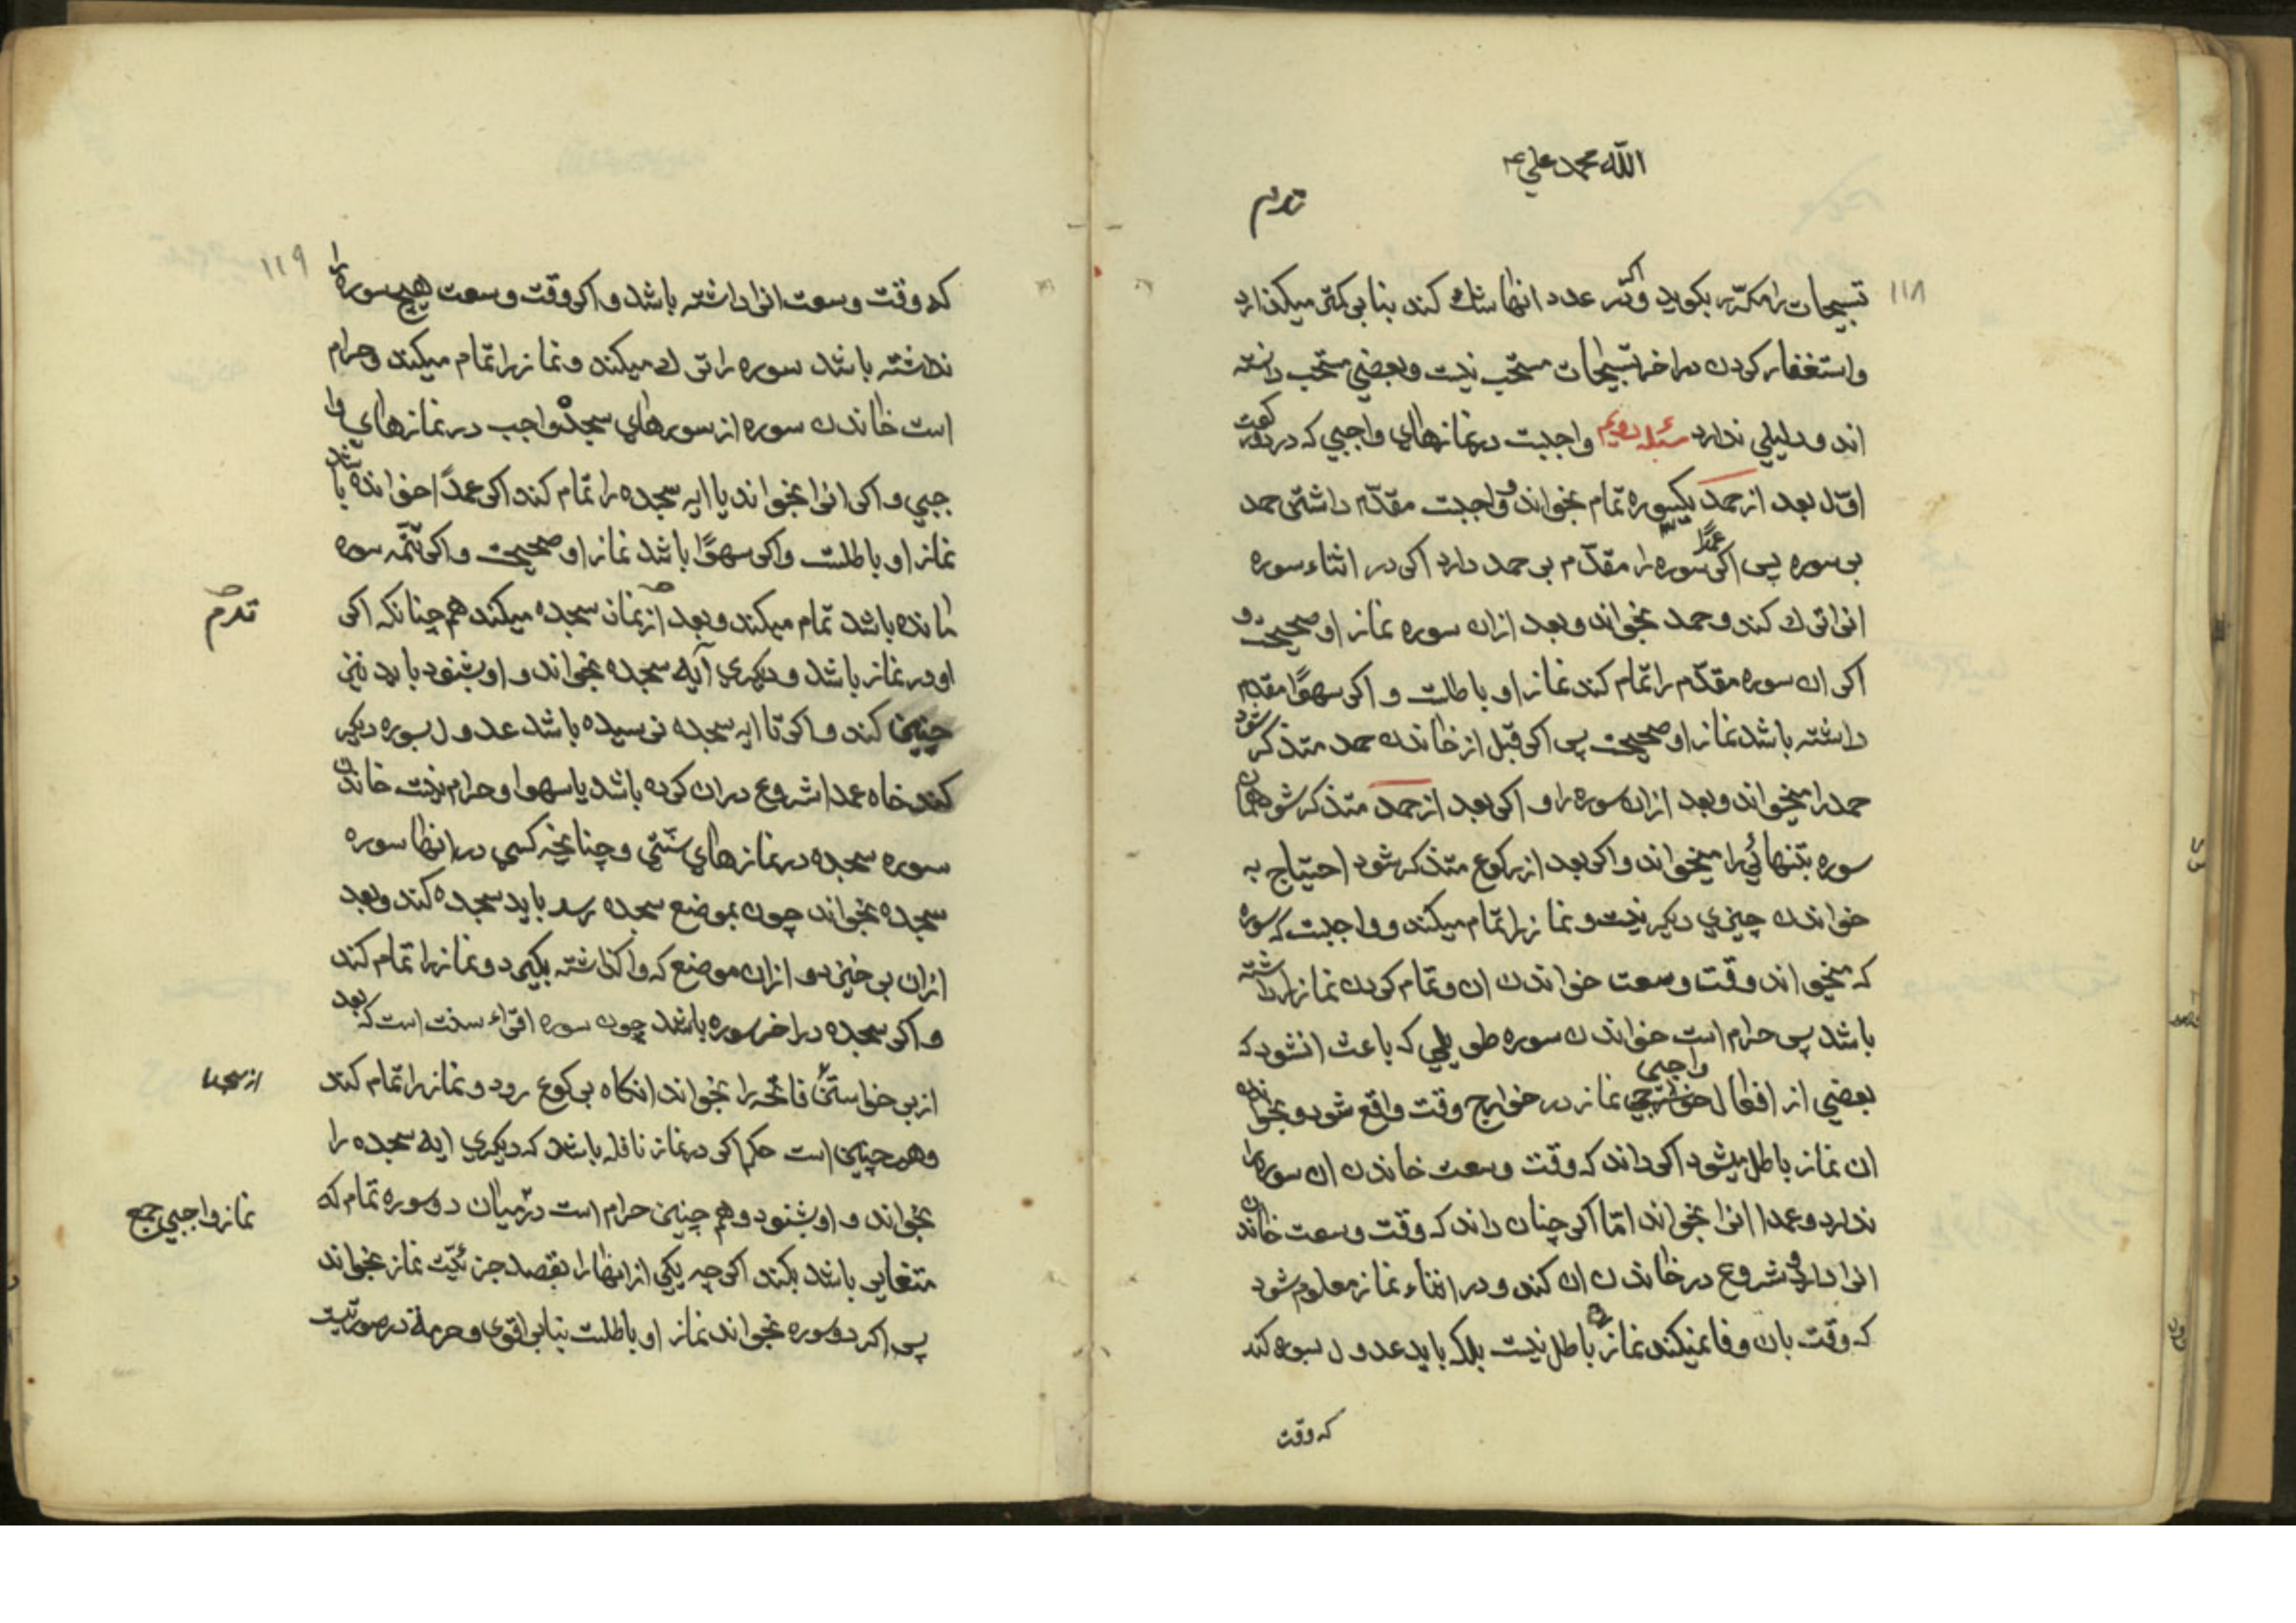 الله محمد علي
١١٨
تسبیحات را مکرّر بکوید و اکر در عدد انها شك کند بنا بر کمتر میکذارد
واستغفار کردن در اخر تسبیحات مستحب نیست وبعضي مستحب دانسته
اند و دلیلي ندارد مسئله دویم واجبست در نمازهاي واجبي که در دو رکعت
اوّل بعد از حمد یکسوره تمام بخواند و واجبست مقدّم داشتن حمد
بر سوره پس اکر عمدًا سوره را مقدّم بر حمد دارد اکر در اثناء سوره
انرا ترك کند و حمد بخواند و بعد ازان سوره نماز او صحیحست و
اکر ان سوره مقدّم را تمام کند نماز او باطلست و اکر سهوًا مقدم
داشته باشد نماز او صحیحست پس اکر قبل از خاندن حمد متذکر شود
حمد را میخواند و بعد ازان سوره را و اکر بعد از حمد متذکر شود همان
سوره بتنهائي را میخواند و اکر بعد از رکوع متذکر شود احتیاج به
خواندن چیزي دیکر نیست و نماز را تمام میکند و واجبست که سوره
که میخواند وقت وسعت خواندن ان و تمام کردن نماز را داشته
باشد پس حرام است خواندن سوره طویلي که باعث ان شود که
بعضي از افعال واجبي نماز در خوارج وقت واقع شود و بخواندن
ان نماز باطل میشود اکر داند که وقت وسعت خاندن ان سوره را
ندارد و عمدا انرا بخواند امّا اکر چنان داند که وقت وسعت خاندن
انرا دارد و شروع در خاندن ان کند و در اثناء نماز معلوم شود
که وقت بان وفا نمیکند نماز باطل نیست بلکه باید عدول بسوره کند
که وقت
١١٩
که وقت وسعت انرا داشته باشد و اکر وقت وسعت هیچ سوره را
نداشته باشد سوره را ترك میکند و نماز را تمام میکند و حرام
است خاندن سوره از سورهاي سجده واجب در نمازهاي وا
جبي و اکر انرا بخواند یا ایه سجده را تمام کند اکر عمدًا خوانده باشد
نماز او باطلست و اکر سهوًا باشد نماز او صحیحست و اکر تتمّه سوره
مانده باشد تمام میکند و بعد از نماز سجده میکند هم چنانکه اکر
او در نماز باشد و دیکري آیه سجده بخواند و او بشنود باید نیز
چنین کند و اکر تا ایه سجده نرسیده باشد عدول بسوره دیکر
کند خاه عمدا شروع دران کرده باشد یا سهوا و حرام نیست خاندن
سوره سجده در نمازهاي سنّتي و چنانچه کسي در انها سوره
سجده بخواند چون بموضع سجده رسد باید سجده کند و بعد
ازان برخیزد و ازان موضع که واکذاشته بکیرد و نماز را تمام کند
و اکر سجده در اخر سوره باشد چون سوره اقراء سنت است که بعد
از سجده
از برخواستن فاتحه را بخواند انکاه برکوع رود و نماز را تمام کند
وهم چنین است حکم اکر در نماز نافله باشد که دیکري ایه سجده را
بخواند و او بشنود و هم چنین حرام است در میان دو سوره تمام که
نماز واجبي جمع
متغایر باشد بکند اکر چه یکي از انها را بقصد جزئیّت نماز بخواند
پس اکر دو سوره بخواند نماز او باطلست بنا بر اقوي و حرمة در صورتیست